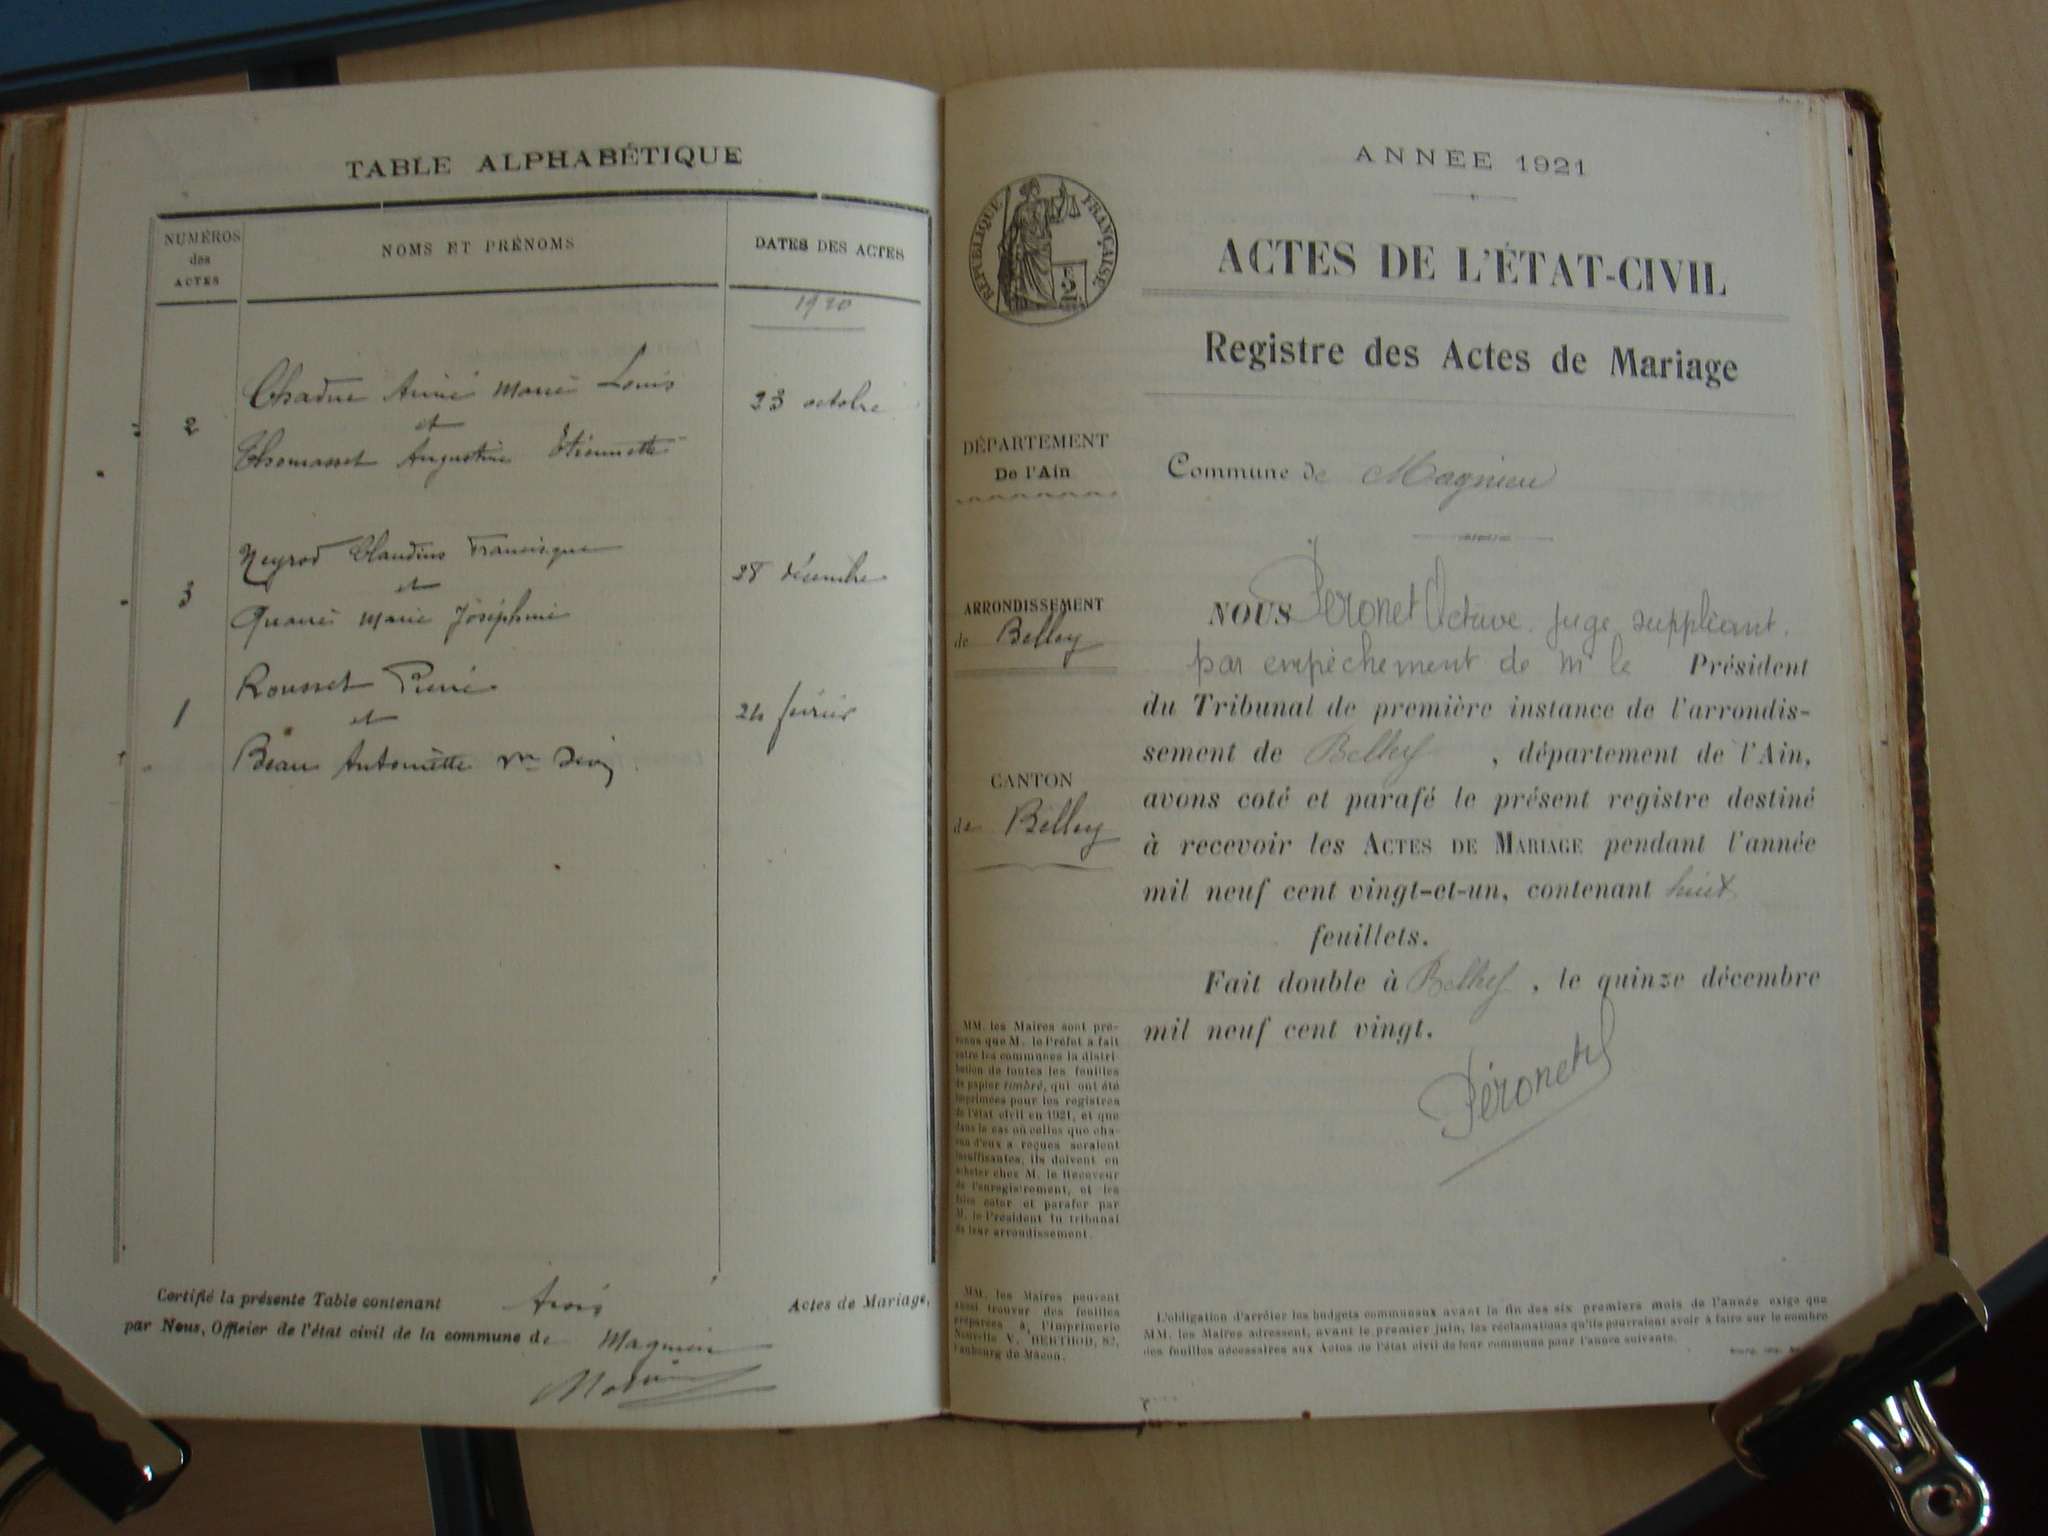 TABLE ALPHABÉTIQUE
NUMÉROS
des
ACTES
NOMS ET PRÉNOMS
DATES DES ACTES
1920
Chadue Aimé Marie Louis
2
et
23 octobre
Thomasset Augustine Étiennette
Neyrod Claudius Francisque
3
et
28 décembre
Marie Joséphine
Rousset Pierre
1
et
24 février
Beau Antoinette
Certifié la présente Table contenant trois Actes de Mariage,
par Nous, Officier de l'état civil de la commune de Magnieu
ANNÉE 1921
RÉPUBLIQUE FRANÇAISE
ACTES DE L'ÉTAT-CIVIL
Registre des Actes de Mariage
DÉPARTEMENT
De l'Ain
Commune de Magnieu
ARRONDISSEMENT
de Belley
CANTON
de Belley
NOUS Péronet Octave, juge suppléant,
par empêchement de Mr le Président
du Tribunal de première instance de l'arrondis-
sement de Belley, département de l'Ain,
avons coté et parafé le présent registre destiné
à recevoir les ACTES DE MARIAGE pendant l'année
mil neuf cent vingt-et-un, contenant huit
feuillets.
Fait double à Belley, le quinze décembre
mil neuf cent vingt.
Péronet
MM. les Maires sont pré-
venus que M. le Préfet a fait
entre les communes la distri-
bution de toutes les feuilles
de papier timbré, qui ont été
imprimées pour les registres
de l'état civil en 1921, et que
dans le cas où celles que cha-
cun d'eux a reçues seraient
insuffisantes, ils doivent en
acheter chez M. le Receveur
de l'enregistrement, et les
faire coter et parafer par
M. le Président du tribunal
de leur arrondissement.
MM. les Maires peuvent
aussi trouver des feuilles
préparées à l'Imprimerie
Nouvelle V. BERTHOD, 82,
faubourg de Mâcon.
L'obligation d'arrêter les budgets communaux avant la fin des six premiers mois de l'année exige que
MM. les Maires adressent, avant le premier juin, les réclamations qu'ils pourraient avoir à faire sur le nombre
des feuilles nécessaires aux Actes de l'état civil de leur commune pour l'année suivante.